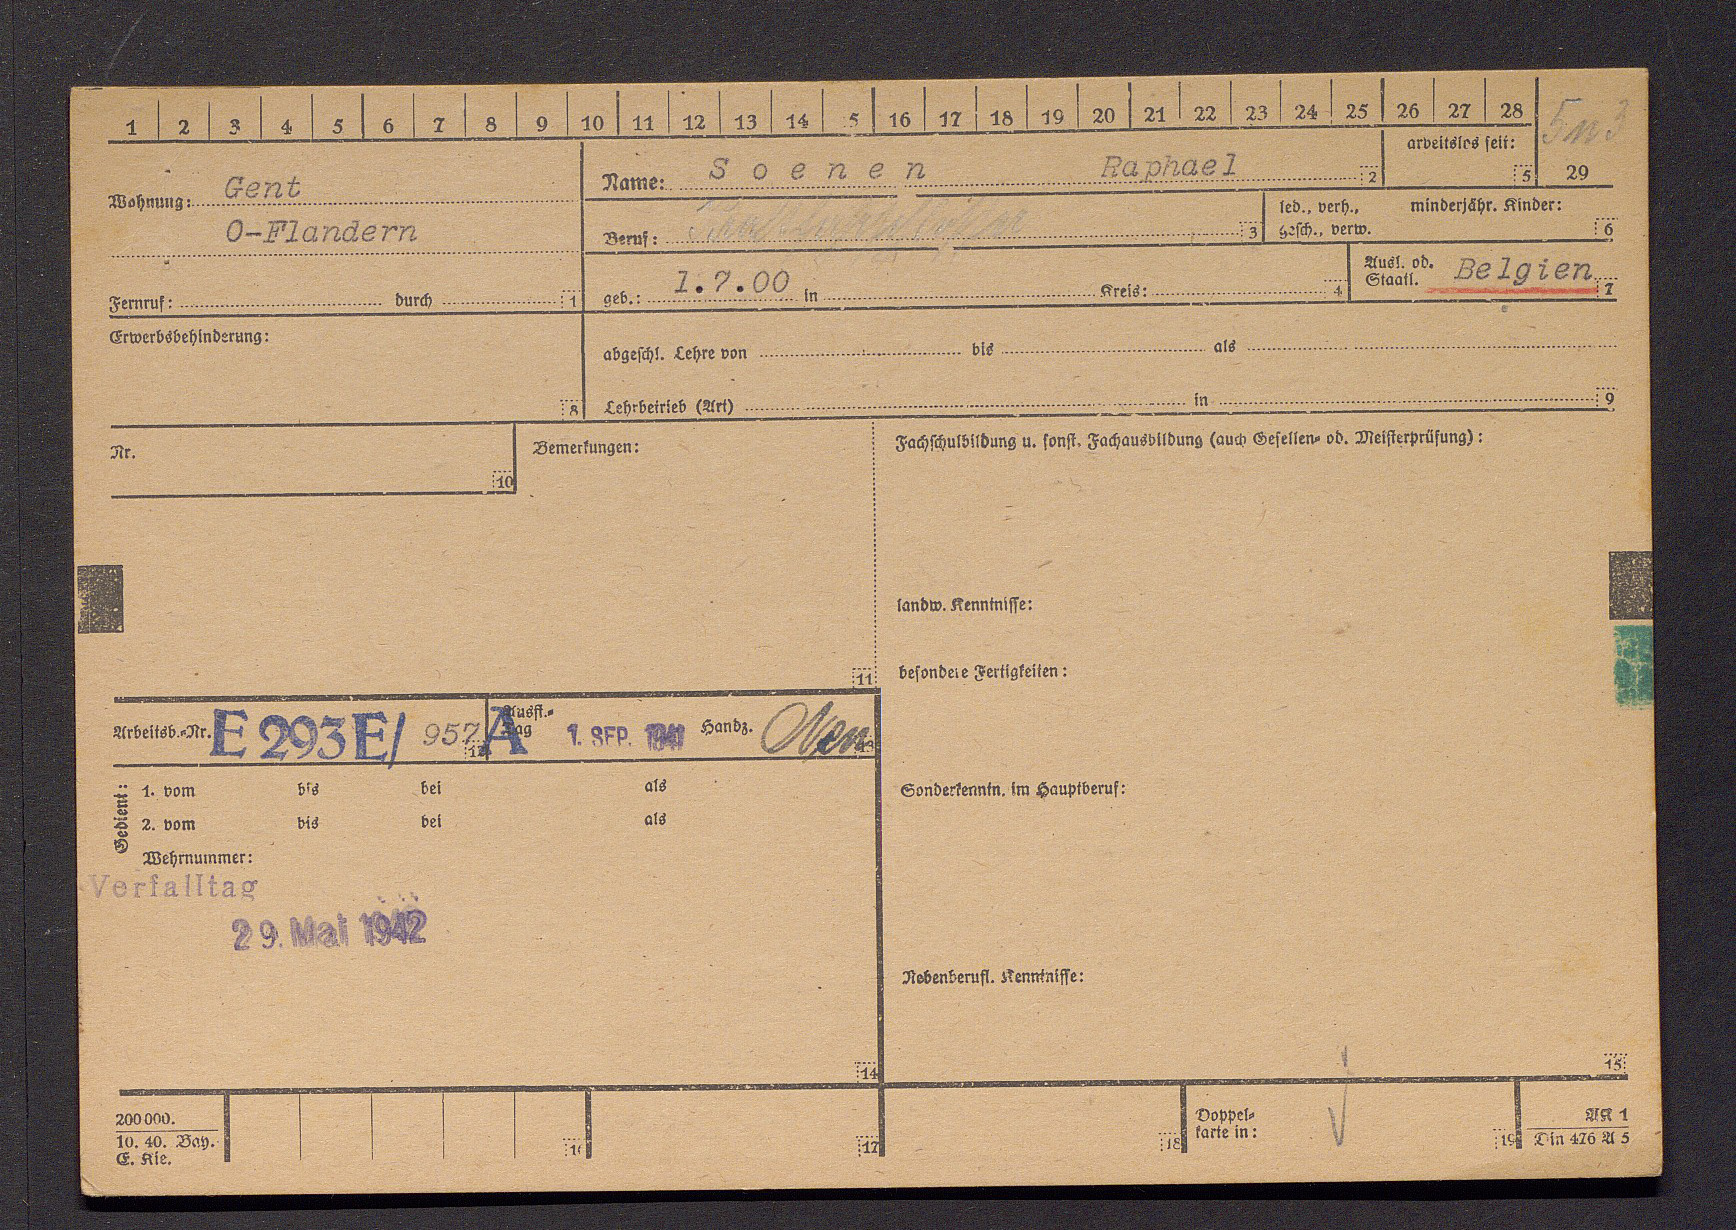 1 2 3 4 5 6 7 8 9 10 11 12 13 14 5 16 17 18 19 20 21 22 23 24 25 26 27 28
arbeitslos seit: 5 29
Wohnung: Gent
O-Flandern
Fernruf: durch 1
Name: Soenen Raphael 2
Beruf: 3
led., verh., gesch., verw.
minderjähr. Kinder: 6
geb.: 1.7.00 in Kreis: 4
Ausl. od. Staatl. Belgien 7
Erwerbsbehinderung: 8
abgeschl. Lehre von bis als
Lehrbetrieb (Art) in 9
Nr. 10
Bemerkungen: 11
Fachschulbildung u. sonst. Fachausbildung (auch Gesellen- od. Meisterprüfung):
landw. Kenntnisse:
besondere Fertigkeiten:
Sonderkenntn. im Hauptberuf:
Nebenberufl. Kenntnisse:
15
Arbeitsb.-Nr. E 293E/ 957 A 12
Ausst.-Tag 1. SEP. 1941 Handz. 13
Gedient:
1. vom bis bei als
2. vom bis bei als
Wehrnummer:
Verfalltag
29. Mai 1942
14
200 000.
10. 40. Bay.
E. Kie.
16 17 18
Doppel-
karte in: 19
AK 1
Din 476 A 5